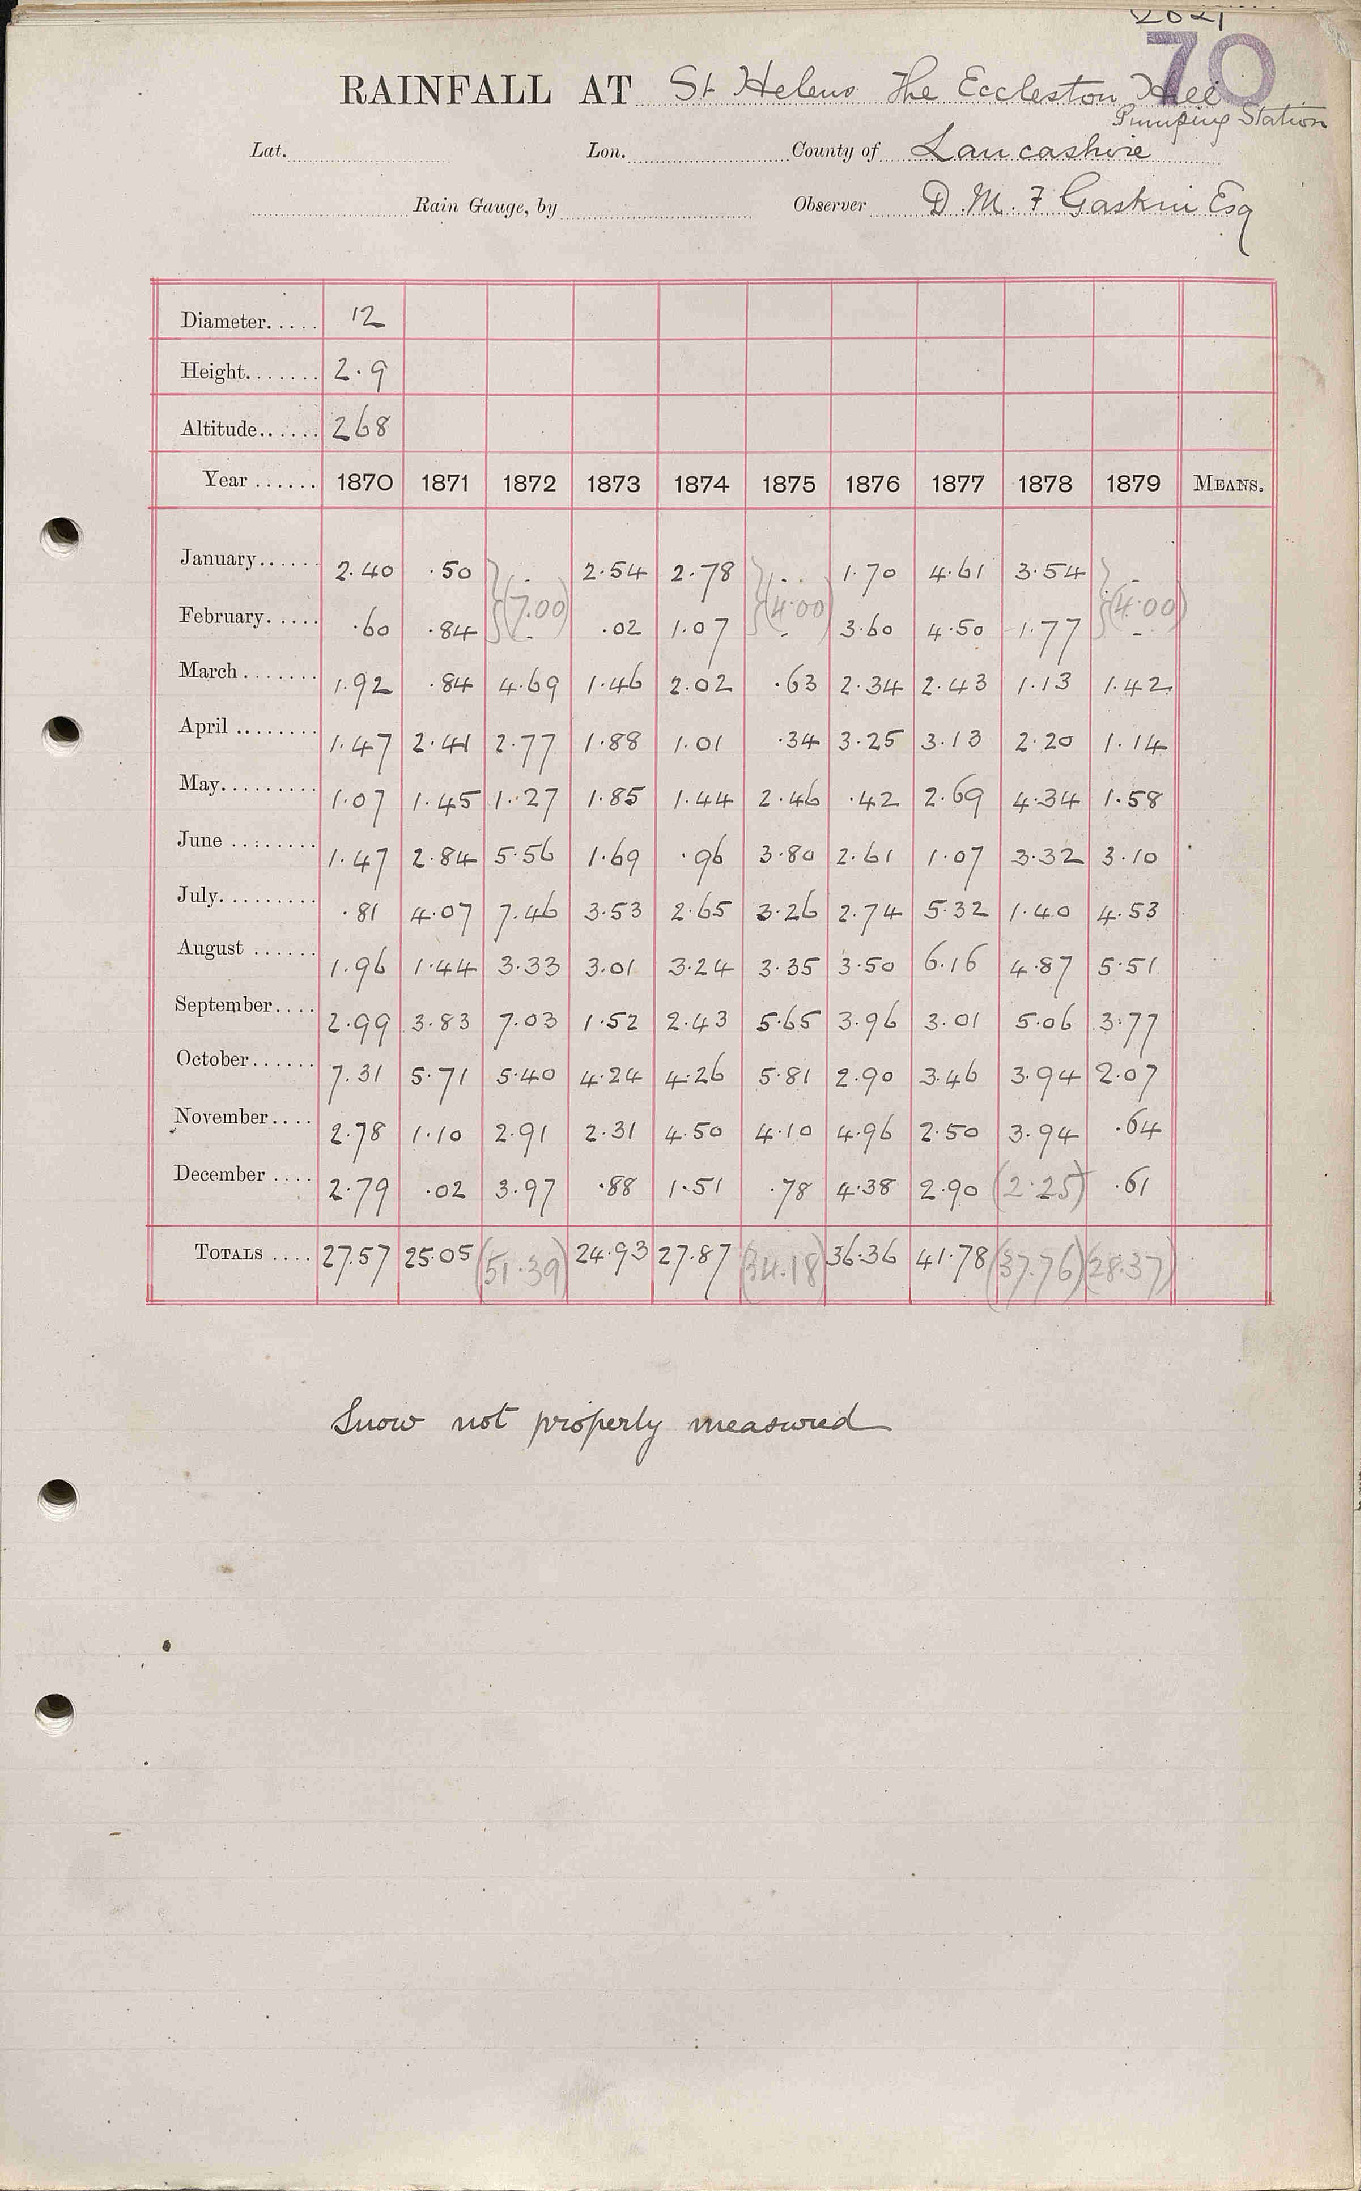 70
RAINFALL AT St Helens The Eccleston Hill
Pumping Station
Lat. Lon. County of Lancashire
Rain Gauge, by Observer D. M. F Gaskin Esq
Diameter..... 12
Height....... 2.9
Altitude...... 268
Year ...... 1870 1871 1872 1873 1874 1875 1876 1877 1878 1879 MEANS.
January...... 2.40 .50 - 2.54 2.78 - 1.70 4.61 3.54 -
(7.00) (4.00) (4.00)
February..... .60 .84 - .02 1.07 - 3.60 4.50 1.77 -
March ....... 1.92 .84 4.69 1.46 2.02 .63 2.34 2.43 1.13 1.42
April ........ 1.47 2.41 2.77 1.88 1.01 .34 3.25 3.13 2.20 1.14
May......... 1.07 1.45 1.27 1.85 1.44 2.46 .42 2.69 4.34 1.58
June ........ 1.47 2.84 5.56 1.69 .96 3.80 2.61 1.07 3.32 3.10
July......... .81 4.07 7.46 3.53 2.65 3.26 2.74 5.32 1.40 4.53
August ...... 1.96 1.44 3.33 3.01 3.24 3.35 3.50 6.16 4.87 5.51
September.... 2.99 3.83 7.03 1.52 2.43 5.65 3.96 3.01 5.06 3.77
October...... 7.31 5.71 5.40 4.24 4.26 5.81 2.90 3.46 3.94 2.07
November.... 2.78 1.10 2.91 2.31 4.50 4.10 4.96 2.50 3.94 .64
December .... 2.79 .02 3.97 .88 1.51 .78 4.38 2.90 (2.25) .61
TOTALS .... 27.57 25.05 (51.39) 24.93 27.87 (34.18) 36.36 41.78 (37.76) (28.37)
Snow not properly measured